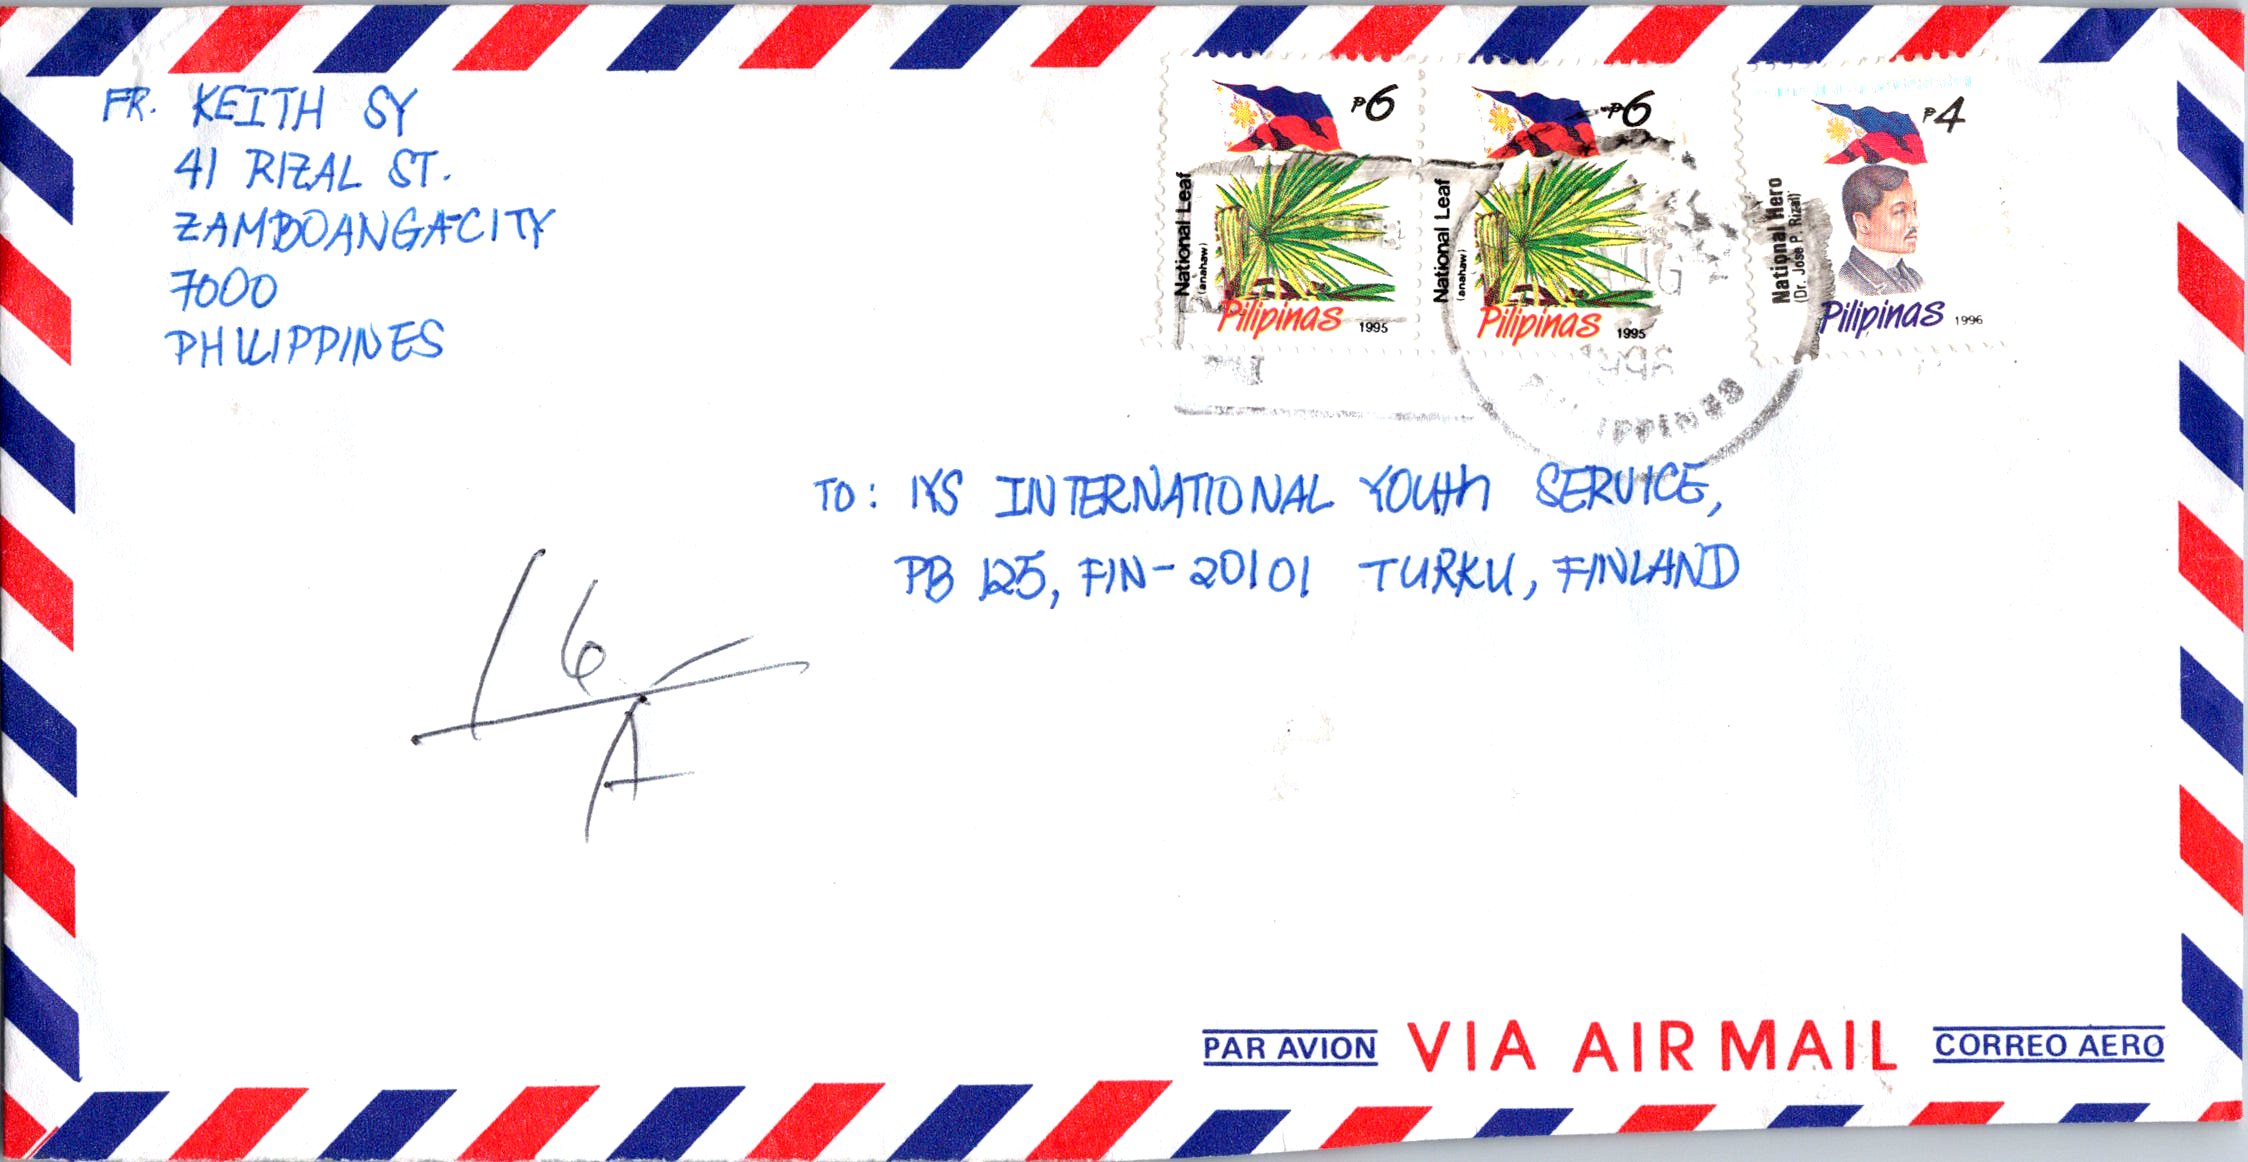 FR. KEITH SY
41 RIZAL ST.
ZAMBOANGA CITY
7000
PHILIPPINES
₱6
National Leaf
(anahaw)
Pilipinas 1995
₱6
National Leaf
(anahaw)
Pilipinas 1995
₱4
National Hero
(Dr. Jose P. Rizal)
Pilipinas 1996
AUG
PHILIPPINES
TO: IYS INTERNATIONAL YOUTH SERVICE,
PB 125, FIN-20101 TURKU, FINLAND
16
A
PAR AVION VIA AIR MAIL CORREO AERO